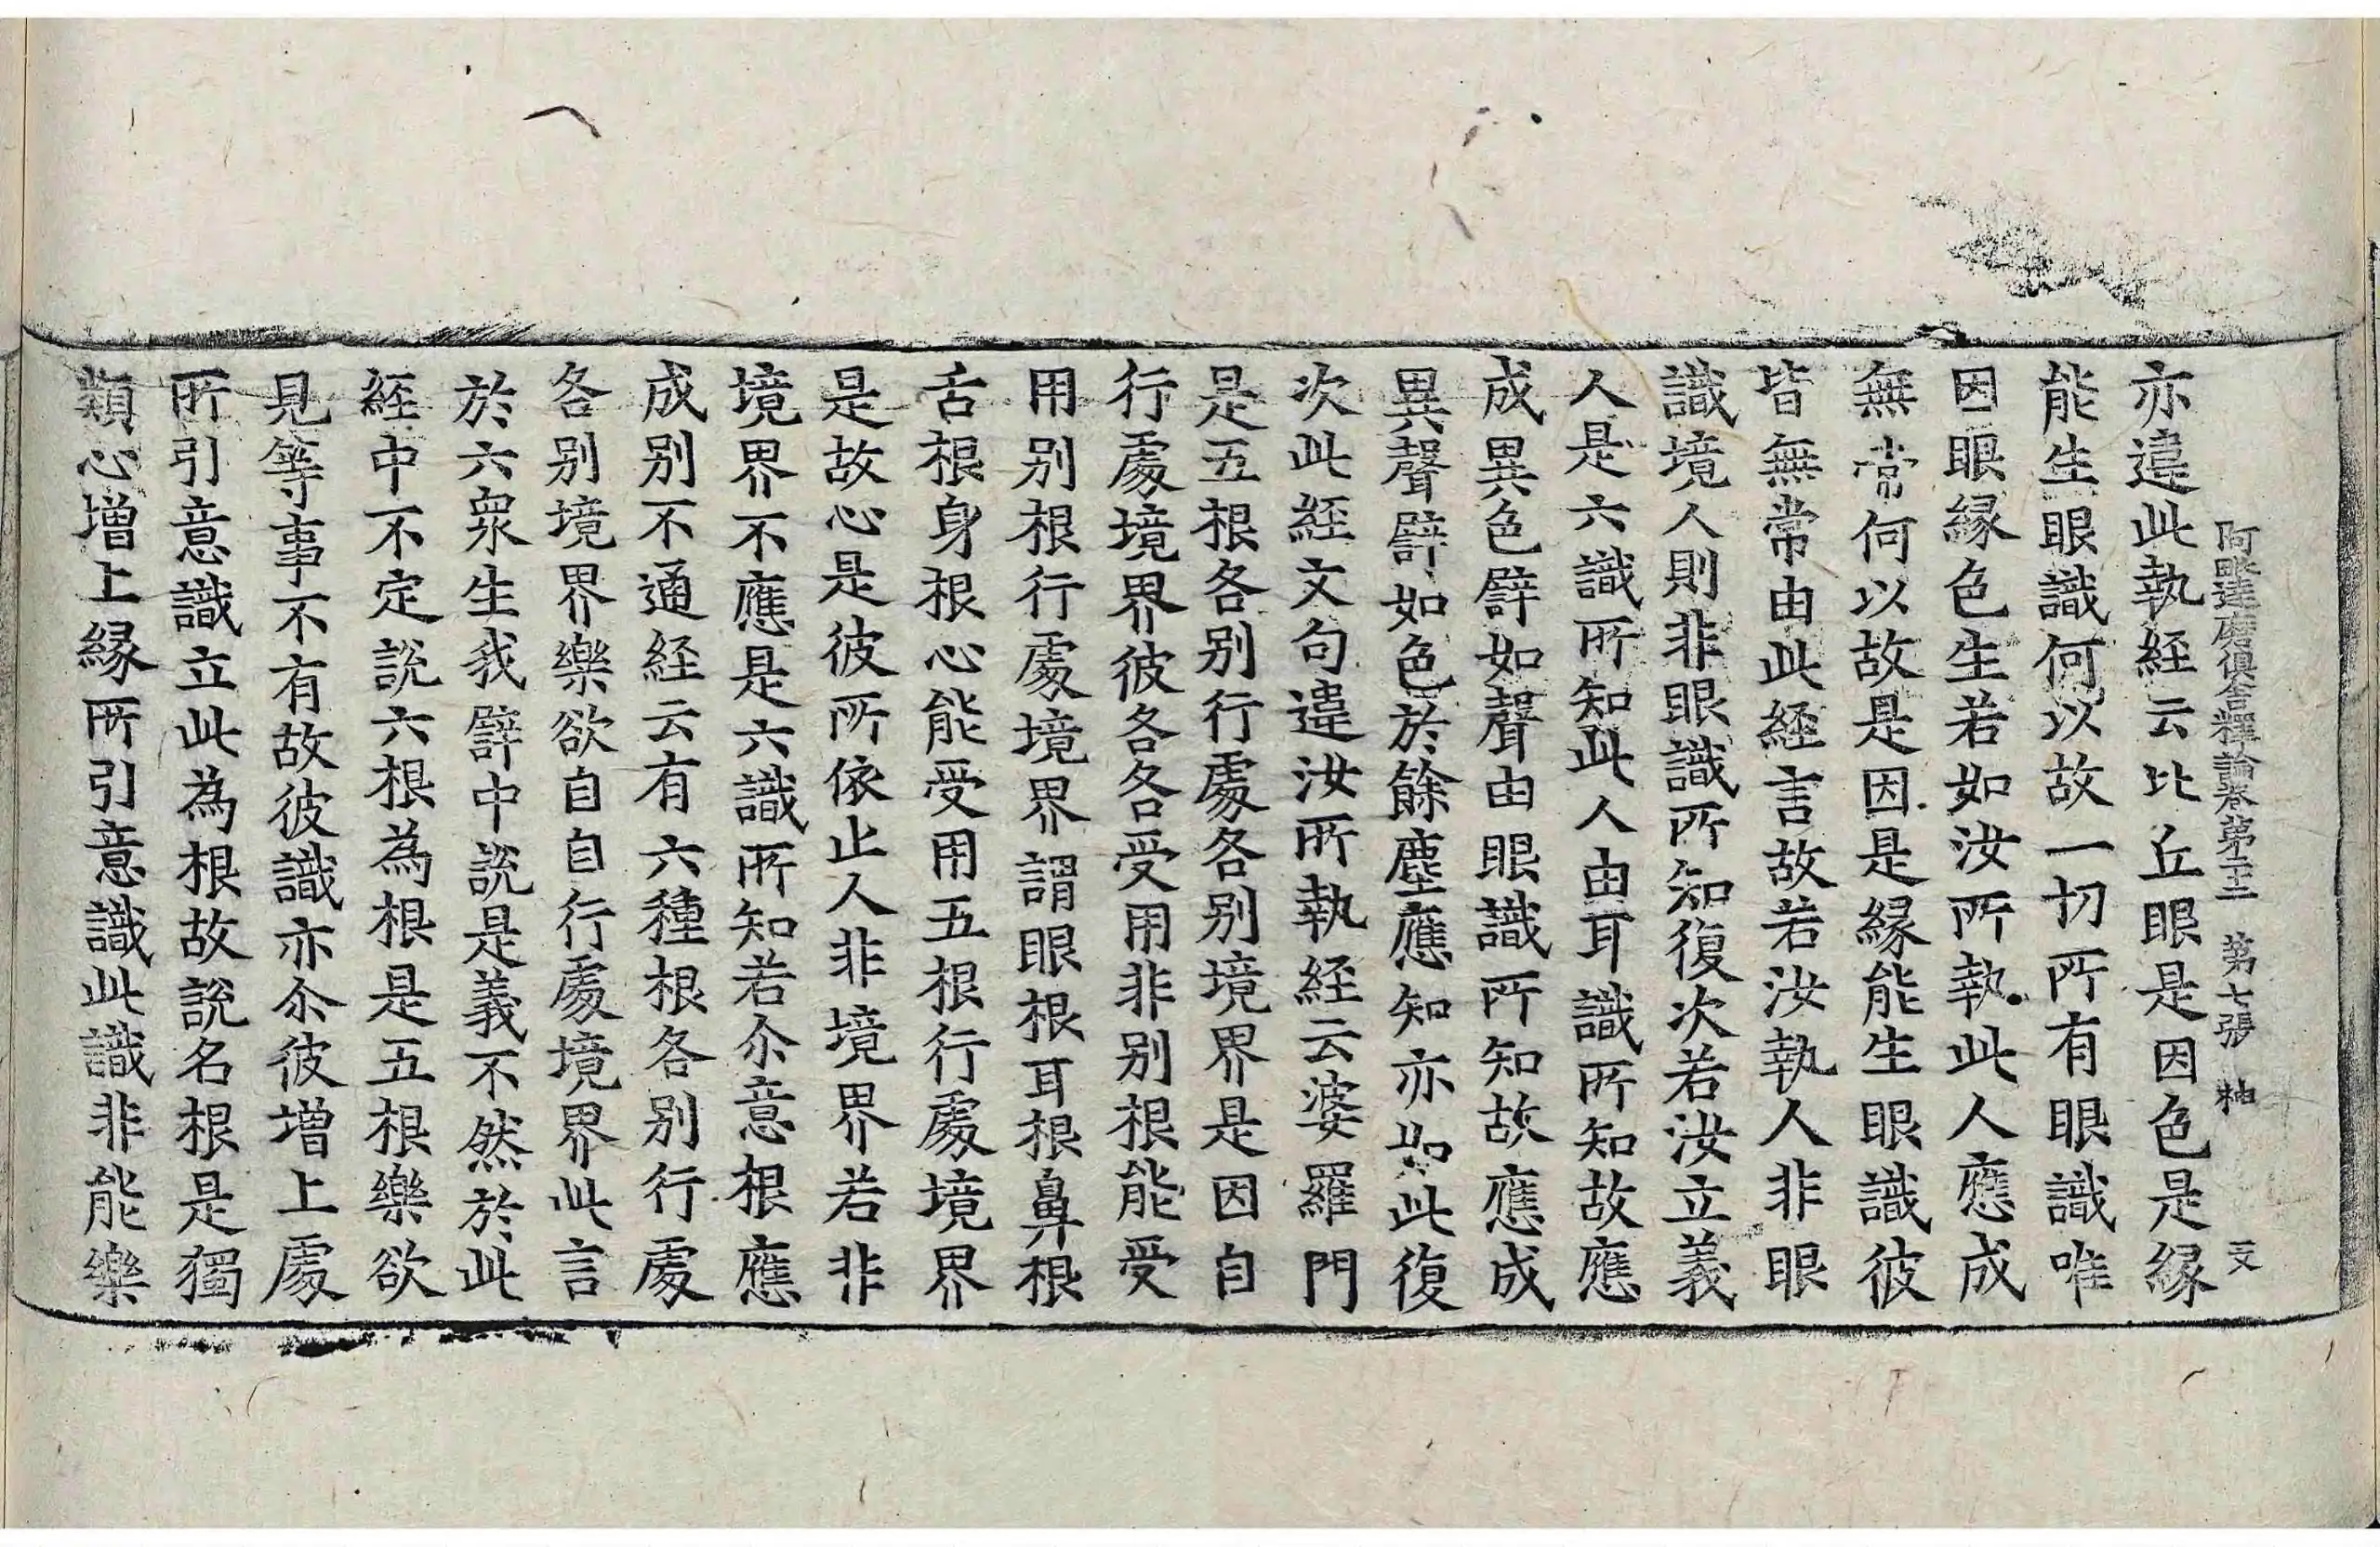 阿毗達磨俱舍釋論卷第二十二 第七張 袖 文
亦違此執経云比丘眼是因色是縁
能生眼識何以故一切所有眼識唯
因眼縁色生若如汝所執此人應成
無常何以故是因是縁能生眼識彼
皆無常由此経言故若汝執人非眼
識境人則非眼識所知復次若汝立義
人是六識所知此人由耳識所知故應
成異色譬如聲由眼識所知故應成
異聲譬如色於餘塵應知亦如此復
次此経文句違汝所執経云婆羅門
是五根各别行處各别境界是因自
行處境界彼各各受用非别根能受
用别根行處境界謂眼根耳根鼻根
舌根身根心能受用五根行處境界
是故心是彼所依止人非境界若非
境界不應是六識所知若尒意根應
成别不通経云有六種根各别行處
各别境界樂欲自自行處境界此言
於六衆生我譬中說是義不然於此
経中不定說六根為根是五根樂欲
見等事不有故彼識亦尒彼增上處
所引意識立此為根故說名根是獨
類心增上縁所引意識此識非能樂